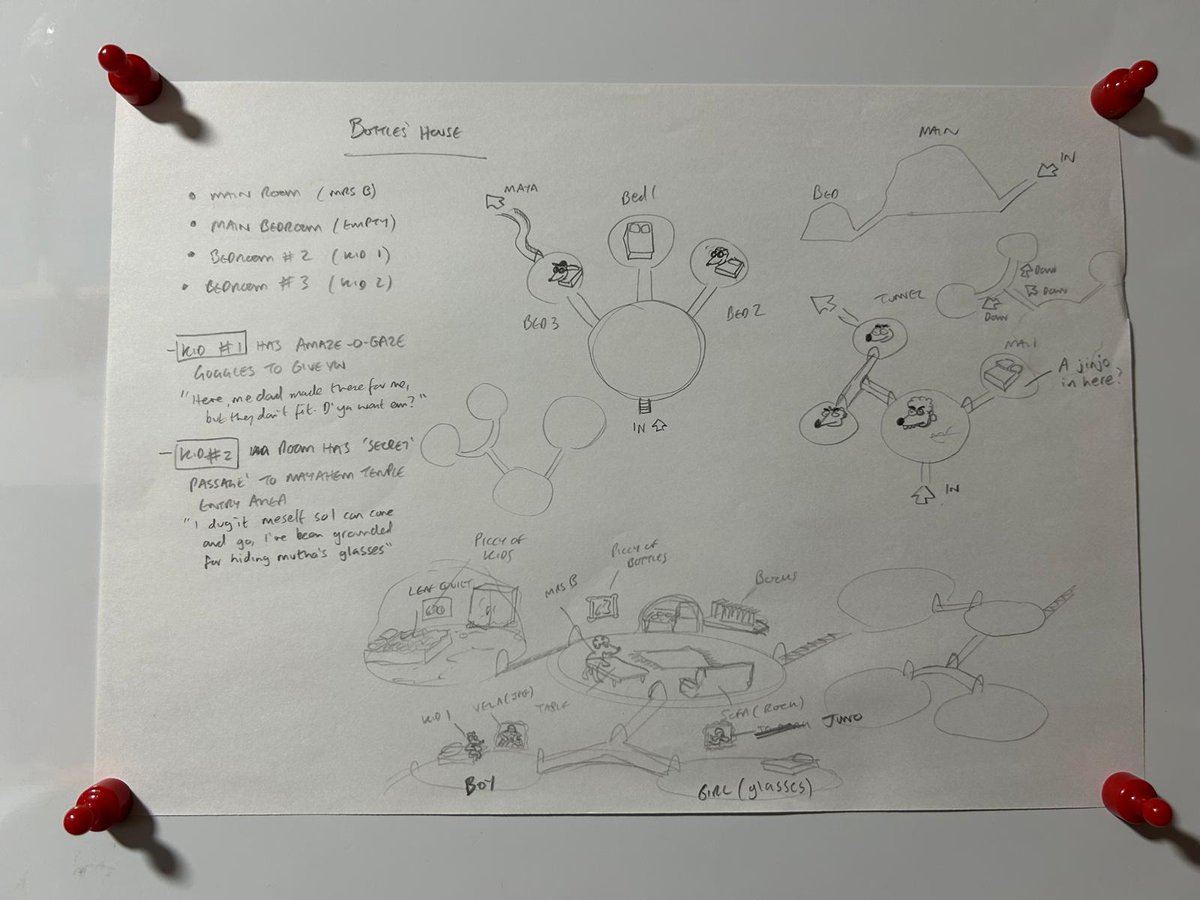 BOTTLES' HOUSE
• MAIN ROOM (MRS B)
• MAIN BEDROOM (EMPTY)
• BEDROOM #2 (KID 1)
• BEDROOM #3 (KID 2)
- KID #1 HAS AMAZE-O-GAZE
GOGGLES TO GIVE YOU
"Here, me dad made these for me,
but they don't fit. D'ya want em?"
- KID #2 ROOM HAS 'SECRET'
PASSAGE' TO MAYAHEM TEMPLE
ENTRY AREA
"I dug it meself so I can come
and go, I've been grounded
for hiding mutha's glasses"
MAYA
BED 1
BED 3
BED 2
IN
MAIN
IN
BED
DOWN
DOWN
DOWN
TUNNEL
MAIN
A jinjo
in here?
IN
PICCY OF
KIDS
LEAF QUILT
MRS B
PICCY OF
BOTTLES
BOOKS
KID 1
TABLE
SOFA (ROCK)
JUNO
BOY
GIRL (glasses)